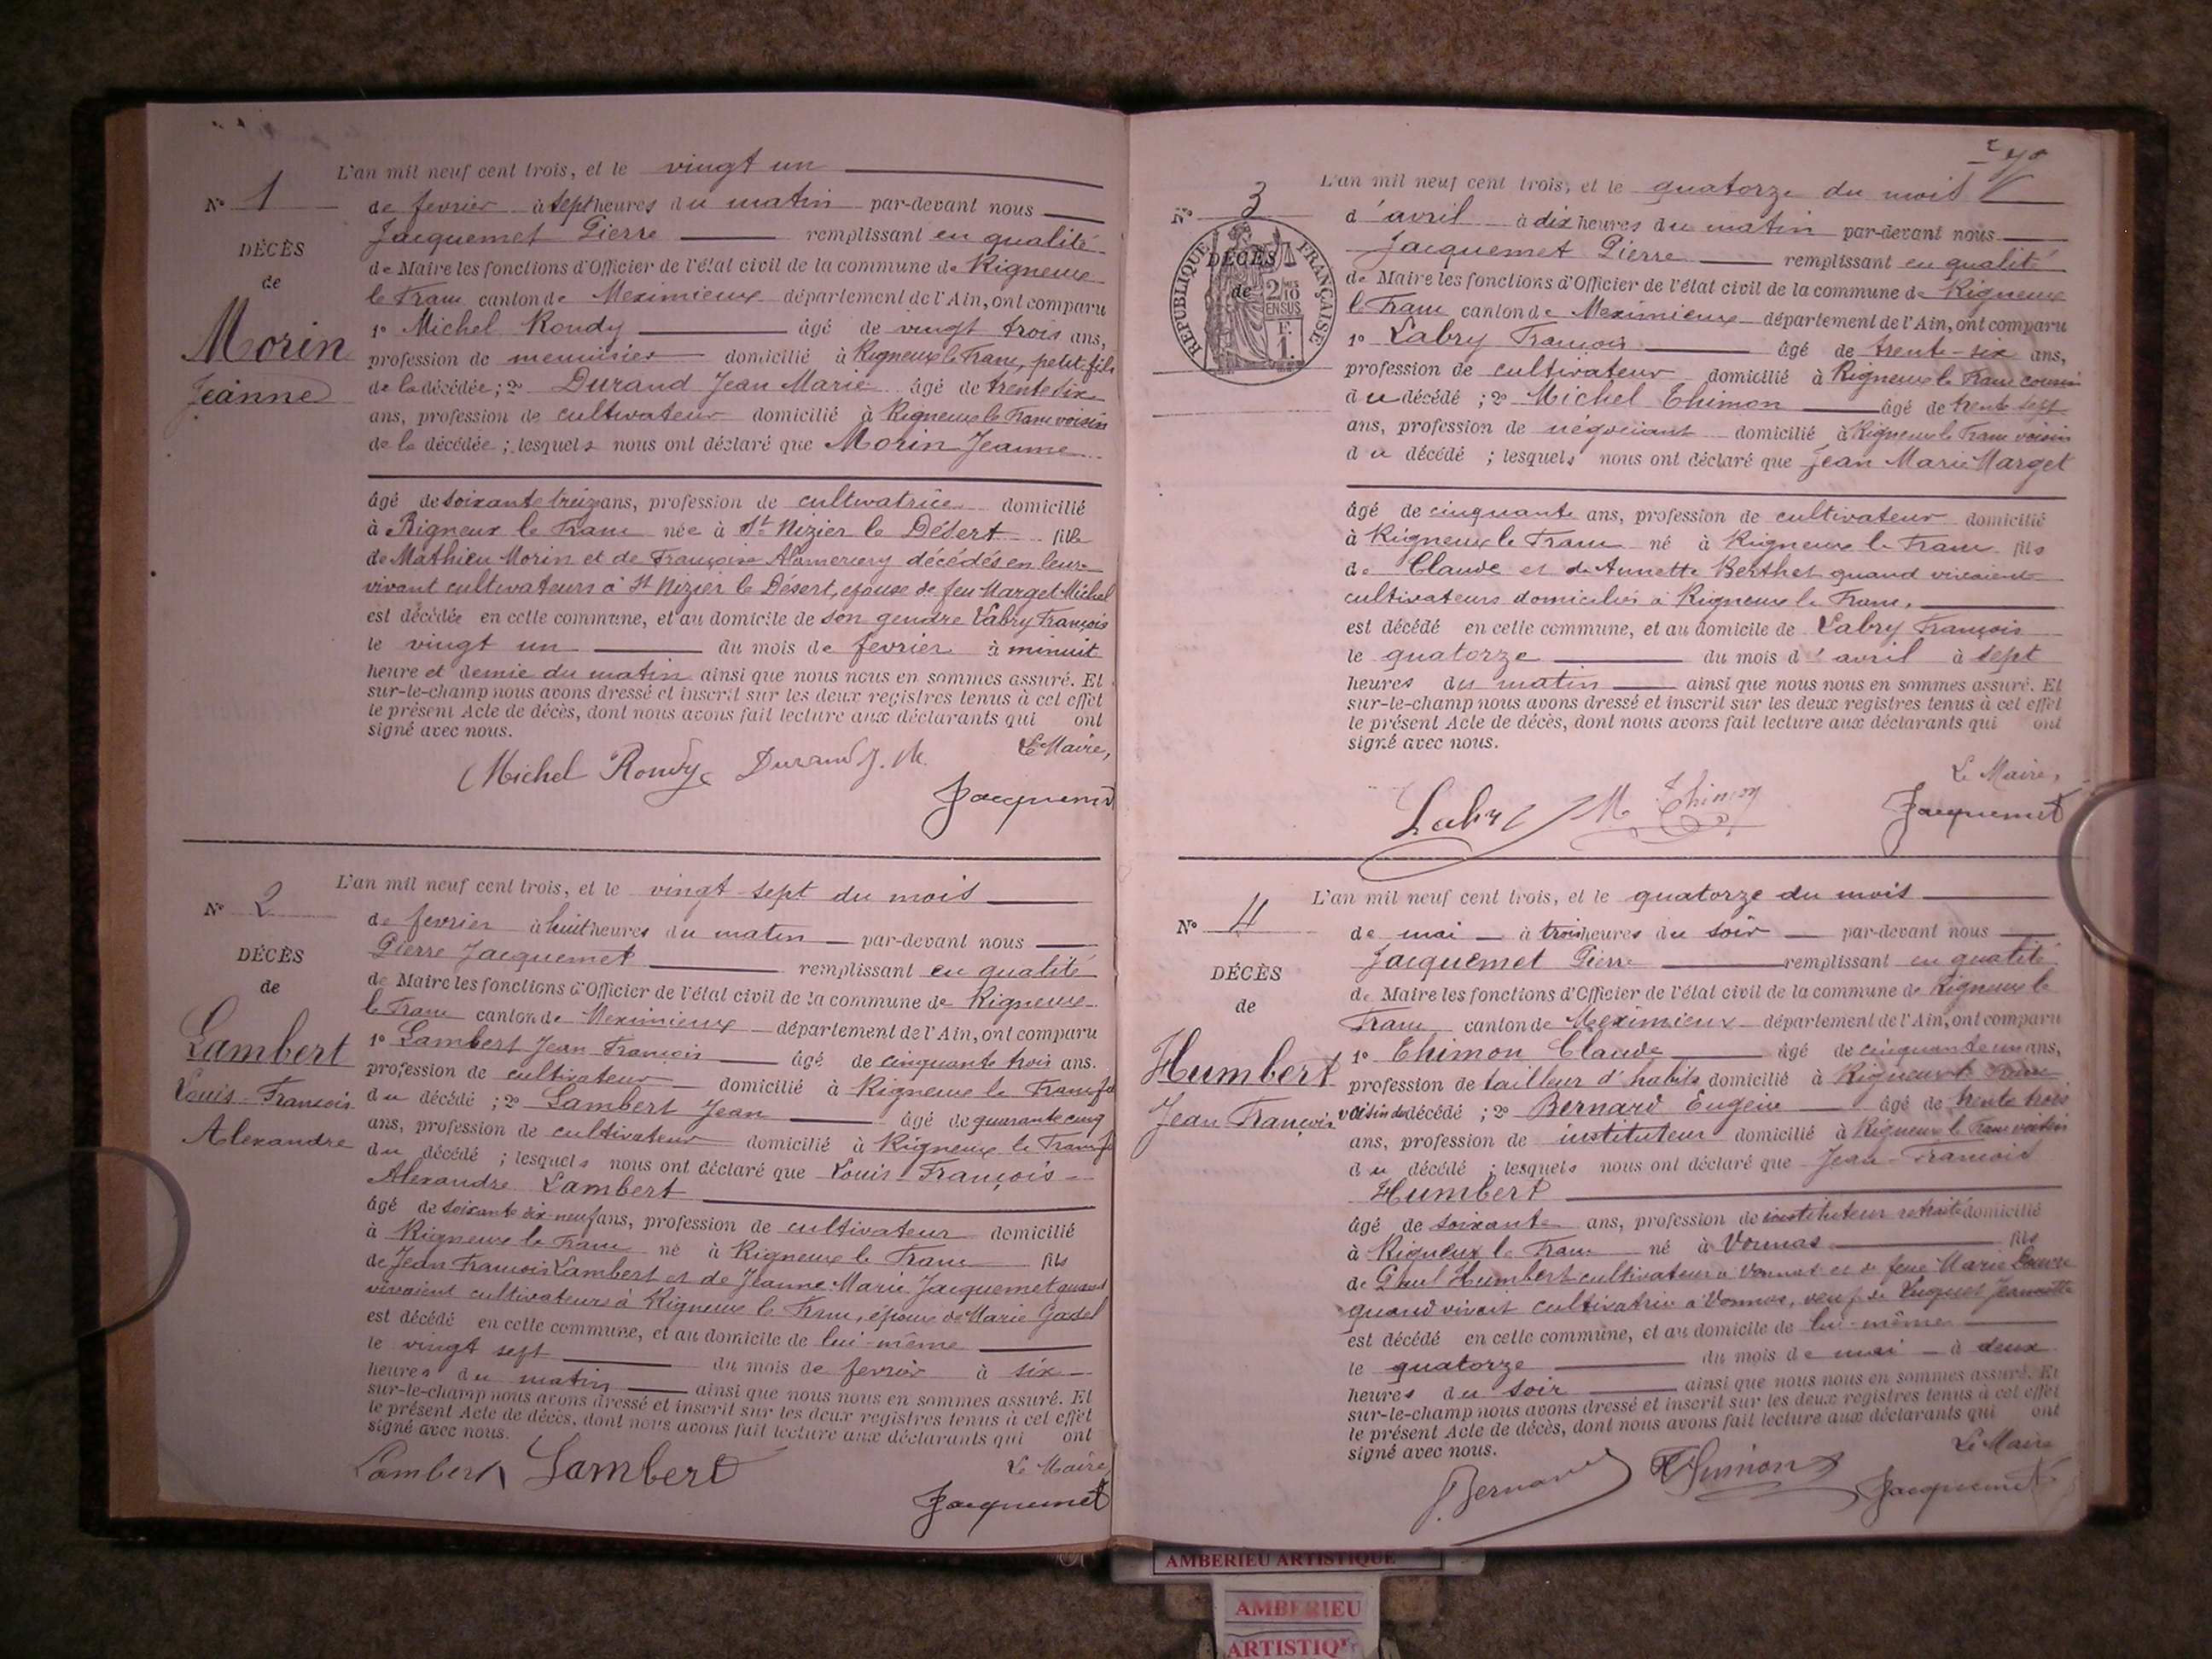 L'an mil neuf cent trois, et le vingt un
N° 1
de fevrier à sept heures du matin par-devant nous
Jacquemet Pierre remplissant en qualité
DÉCÈS
de Maire les fonctions d'Officier de l'état civil de la commune de Rigneux
de
le Franc canton de Meximieux département de l'Ain, ont comparu
1° Michel Roudy âgé de vingt trois ans,
Morin
profession de menuisier domicilié à Rigneux le Franc, petit fils
Jeanne
de la décédée; 2° Durand Jean Marie âgé de trente six
ans, profession de cultivateur domicilié à Rigneux le Franc voisin
de la décédée; lesquels nous ont déclaré que Morin Jeanne
âgé de soixante treize ans, profession de cultivatrice domicilié
à Rigneux le Franc née à St Nizier le Désert fille
de Mathieu Morin et de Françoise décédés en leur
vivant cultivateurs à St Nizier le Désert, épouse de feu Marget Michel
est décédée en cette commune, et au domicile de son gendre Labry François
le vingt un du mois de fevrier à minuit
heure et demie du matin ainsi que nous nous en sommes assuré. Et
sur-le-champ nous avons dressé et inscrit sur les deux registres tenus à cet effet
le présent Acte de décès, dont nous avons fait lecture aux déclarants qui ont
signé avec nous.
Le Maire,
Michel Roudy Durand J. M.
Jacquemet
L'an mil neuf cent trois, et le vingt sept du mois
N° 2
de fevrier à huit heures du matin par-devant nous
Pierre Jacquemet remplissant en qualité
DÉCÈS
de Maire les fonctions d'Officier de l'état civil de la commune de Rigneux
de
le Franc canton de Meximieux département de l'Ain, ont comparu
1° Lambert Jean Francois âgé de cinquante trois ans.
Lambert
profession de cultivateur domicilié à Rigneux le Franc
Louis-François
du décédé; 2° Lambert Jean âgé de quarante cinq
Alexandre
ans, profession de cultivateur domicilié à Rigneux le Franc
du décédé; lesquels nous ont déclaré que Louis François
Alexandre Lambert
âgé de soixante dix-neuf ans, profession de cultivateur domicilié
à Rigneux le Franc né à Rigneux le Franc fils
de Jean Francois Lambert et de Jeanne Marie Jacquemet quand
vivaient cultivateurs à Rigneux le Franc, époux de Marie Gadel
est décédé en cette commune, et au domicile de lui-même
le vingt sept du mois de fevrier à six
heures du matin ainsi que nous nous en sommes assuré. Et
sur-le-champ nous avons dressé et inscrit sur les deux registres tenus à cet effet
le présent Acte de décès, dont nous avons fait lecture aux déclarants qui ont
signé avec nous.
Lambert Lambert
Le Maire
Jacquemet
L'an mil neuf cent trois, et le quatorze du mois
N° 3
d'avril à dix heures du matin par-devant nous
Jacquemet Pierre remplissant en qualité
RÉPUBLIQUE FRANÇAISE
2/10 EN SUS
F. 1.
DÉCÈS
de
de Maire les fonctions d'Officier de l'état civil de la commune de Rigneux
le Franc canton de Meximieux département de l'Ain, ont comparu
1° Labry Francois âgé de trente-six ans,
profession de cultivateur domicilié à Rigneux le Franc cousin
du décédé; 2° Michel Thimon âgé de trente sept
ans, profession de négociant domicilié à Rigneux le Franc voisin
du décédé; lesquels nous ont déclaré que Jean Marie Marget
âgé de cinquante ans, profession de cultivateur domicilié
à Rigneux le Franc né à Rigneux le Franc fils
de Claude et de Annette Berthet quand vivaient
cultivateurs domiciliés à Rigneux le Franc,
est décédé en cette commune, et au domicile de Labry François
le quatorze du mois d'avril à sept
heures du matin ainsi que nous nous en sommes assuré. Et
sur-le-champ nous avons dressé et inscrit sur les deux registres tenus à cet effet
le présent Acte de décès, dont nous avons fait lecture aux déclarants qui ont
signé avec nous.
Le Maire,
Labry M Thimon
Jacquemet
L'an mil neuf cent trois, et le quatorze du mois
N° 4
de mai à trois heures du soir par-devant nous
Jacquemet Pierre remplissant en qualité
DÉCÈS
de Maire les fonctions d'Officier de l'état civil de la commune de Rigneux le
de
Franc canton de Meximieux département de l'Ain, ont comparu
1° Thimon Claude âgé de cinquante un ans,
Humbert
profession de tailleur d'habits domicilié à Rigneux le Franc
Jean François
voisin du décédé; 2° Bernard Eugène âgé de trente trois
ans, profession de instituteur domicilié à Rigneux le Franc voisin
du décédé; lesquels nous ont déclaré que Jean-Francois
Humbert
âgé de soixante ans, profession de instituteur retraité domicilié
à Rigneux le Franc né à Vonnas fils
de Humbert cultivateur à Vonnas et de feue Marie
quand vivait cultivatrice à Vonnas, veuf de Jeannette
est décédé en cette commune, et au domicile de lui-même
le quatorze du mois de mai à deux
heures du soir ainsi que nous nous en sommes assuré. Et
sur-le-champ nous avons dressé et inscrit sur les deux registres tenus à cet effet
le présent Acte de décès, dont nous avons fait lecture aux déclarants qui ont
signé avec nous.
Le Maire
Bernard Thimon Jacquemet
AMBERIEU ARTISTIQUE
AMBERIEU
ARTISTIQU